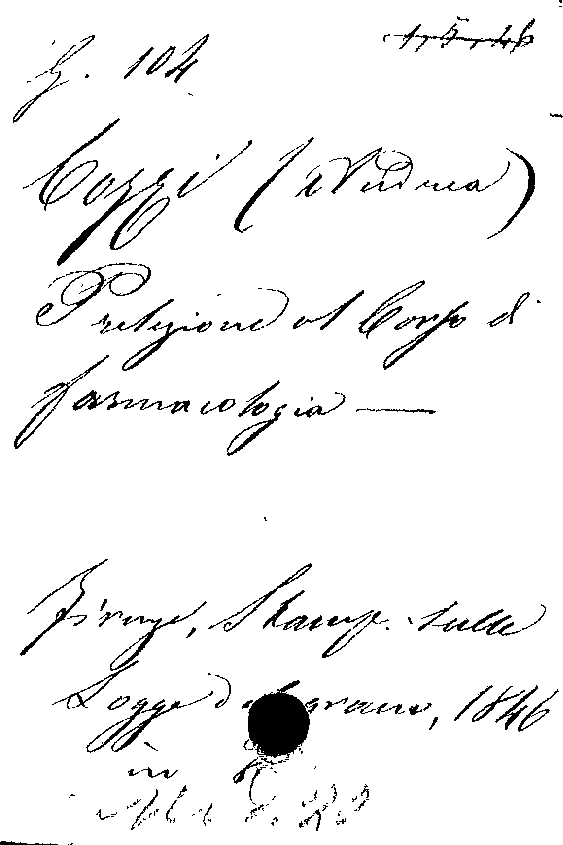 G. 104
1, 5, 46
Cozzi (Andrea)
Prelezione al Corso di
farmacologia —
Firenze, Stamp. sulle
Logge del grano, 1846
in 8°